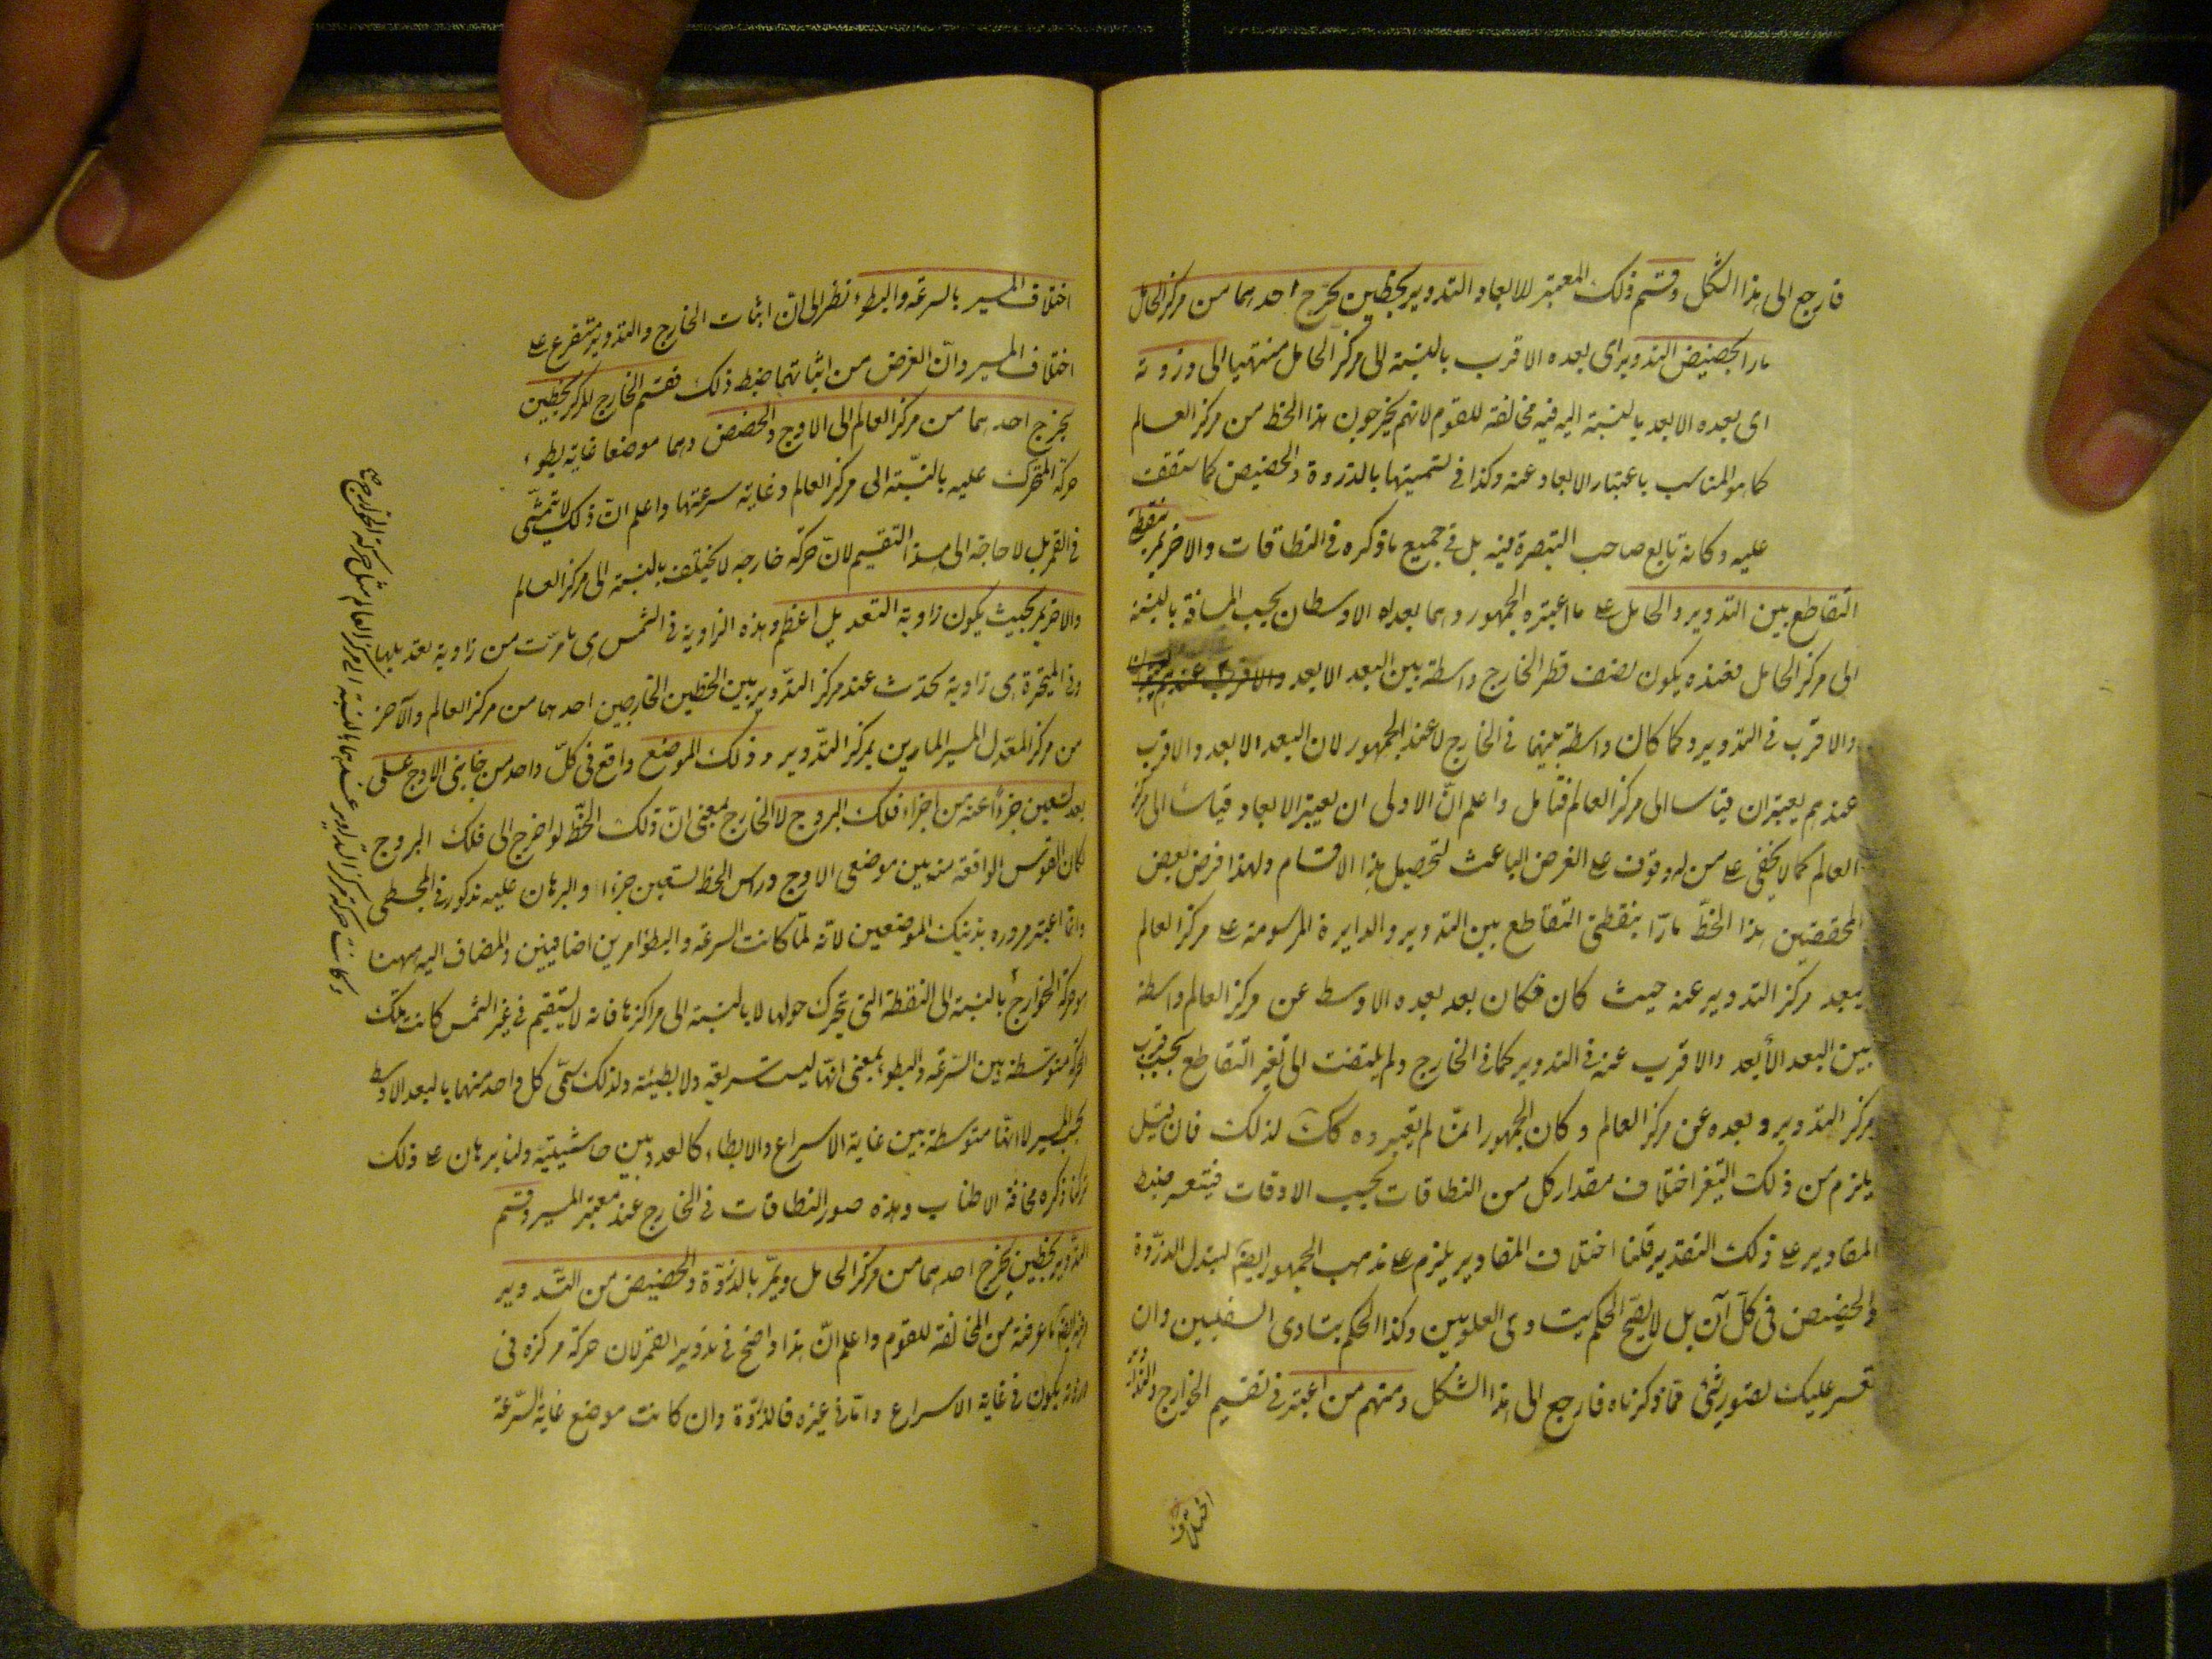 فارجع الى هذا الشكل وقسم ذلك المعتبر للابعاد التدوير بخطين يخرج احدهما من مركز الحامل
مارا بحضيض التدوير اى بعده الاقرب بالنسبة الى مركز الحامل منتهيا الى وزروته
اى بعده الابعد بالنسبة اليه فيه مخالفة للقوم لانهم يخرجون هذا الخط من مركز العالم
كما هو المناسب باعتبار الابعاد عنه وكذا فى تسميتها بالذروة والحضيض كما ستقف
عليه وكانه تابع صاحب التبصرة فيه بل فى جميع ما ذكره فى النطاقات والاخر يمر بنقطة
التقاطع بين التدوير والحامل على ما اعتبره الجمهور وهما بعداه الاوسطان بحسب المسافة بالنسبة
الى مركز الحامل فعنده يكون نصف قطر الخارج واسطة بين البعد الابعد والاقرب عندهم
والاقرب فى التدوير وكما كان واسطة بينهما فى الخارج لا عند الجمهور لان البعد الابعد والاقرب
عندهم يعتبران قياسا الى مركز العالم فتامل واعلم انّ الاولى ان يعتبر الابعاد قياسا الى مركز
العالم كما لا يخفى على من له وقوف على الغرض الباعث لتحصيل هذا الاقسام ولهذا فرض بعض
المحققين هذا الخطّ مارّا بنقطتى التقاطع بين التدوير والدايرة المرسومة على مركز العالم
يبعد مركز التدوير عنه حيث كان فكان بعد بعده الاوسط عن مركز العالم واسطة
بين البعد الأبعد والاقرب عنه فى التدوير كما فى الخارج ولم يلتفت الى تغير التقاطع بحسب قرب
مركز التدوير وبعده عن مركز العالم وكان الجمهور انما لم يعتبروه كك لذلك فان قيل
يلزم من ذلك التغير اختلاف مقدار كل من النطاقات بحسب الاوقات فيتعسر ضبط
المقادير على ذلك التقدير قلنا اختلاف المقادير يلزم على مذهب الجمهور ايضا لتبدل الذرّوة
والحضيض فى كلّ آن بل لا يصحّ الحكم بتساوى العلويين وكذا الحكم بتساوى السفليين وان
تعسر عليك تصوير شئ مما ذكرناه فارجع الى هذا الشكل ومنهم من اعتبر فى تقسيم الخوارج والتداوير
اختلاف
اختلاف المسير بالسرعة والبطوء نظرا الى انّ اثبات الخارج والتدوير متفرع على
اختلاف المسير وانّ الغرض من اثباتهما ضبط ذلك فقسم الخارج المركز بخطين
يخرج احدهما من مركز العالم الى الاوج والحضيض وهما موضعا غاية بطوء
حركة المتحرك عليه بالنسّبة الى مركز العالم وغاية سرعتها واعلم ان ذلك لا يتمشّى
فى القمر بل لا حاجة الى هذا التقسيم لانّ حركة خارجه لا تختلف بالنسبة الى مركز العالم
والاخر يمر بحيث يكون زاوية التعديل اعظم وهذه الزاوية فى الشمس هى ما مرّت من زاوية تعديلها
وفى المتحيرة هى زاوية تحدث عند مركز التدّوير بين الخطين الخارجين احدهما من مركز العالم والآخر
من مركز المعدّل المسير المارين بمركز التدّوير وذلك الموضع واقع فى كلّ واحد من جانبى الاوج على
بعد تسعين جزءًا عنه من اجزاء فلك البروج لا الخارج بمعنى انّ ذلك الخطّ لو اخرج الى فلك البروج
لكان القوس الواقعة منه بين موضعى الاوج وراس الخط تسعين جزءا والبرهان عليه مذكور فى المجسطى
وانما اعتبر مروره بذينك الموضعين لانّه لمّا كانت السرعة والبطؤ امرين اضافيين والمضاف اليه ههنا
هو حركة الخوارج بالنسبة الى النقطة التى يتحرك حولها لا بالنسبة الى مراكزها فانه لا يستقيم فى غير الشمس كانت تلك
الحركة متوسّطة بين السّرعة والبطوء بمعنى انّها ليست سريعة ولا بطيئة ولذلك سمّى كل واحد منهما بالبعد الاوسط
بحسب المسير لا انّها متوسطة بين غاية الاسراع والابطاء كالعدد بين حاشيتيه ولنا برهان على ذلك
تركنا ذكره مخافة الاطناب وهذه صور النطاقات فى الخارج عند معتبر المسير وقسم
التدّوير بخطين يخرج احدهما من مركز الحامل ويمرّ بالذّروّة والحضيض من التدّوير
وفيه ايضا ما عرفته من المخالفة للقوم واعلم انّ هذا واضح فى تدوير القمر لان حركة مركزه فى
يكون فى غاية الاسراع وامّا فى غيره فالذرّوة وان كانت موضع غاية السّرعة
وكانت حركة مركز التداوير عندهما بالنسبة الى مركز العالم مثل حركة الخوارج صح